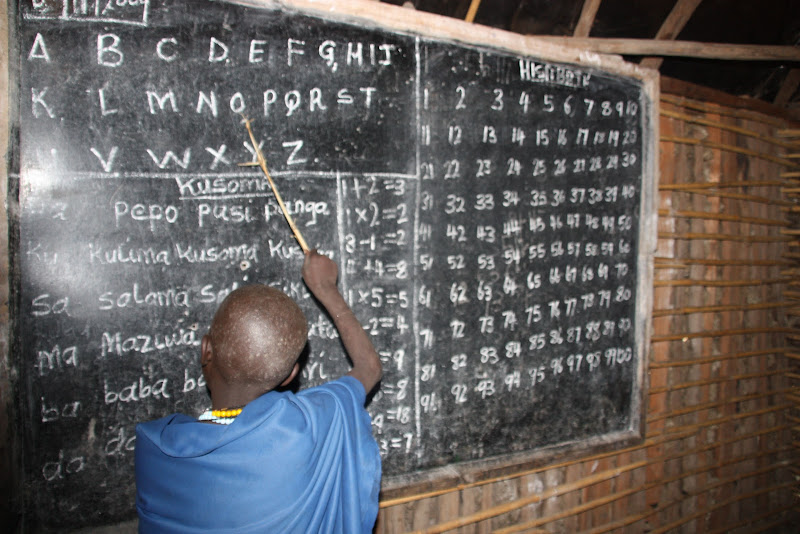 A B C D E F G H I J
K L M N O P Q R S T
V W X Y Z
Kusoma
pepo pasi panga
Ku Kulima Kusoma Kusoma
Sa salama
Ma Maziwa
ba baba
da
1+2=3
1×2=2
3-1=2
+4=8
1×5=5
-2=4
=9
=8
=18
=7
HISABATI
1 2 3 4 5 6 7 8 9 10
11 12 13 14 15 16 17 18 19 20
21 22 23 24 25 26 27 28 29 30
31 32 33 34 35 36 37 38 39 40
41 42 43 44 45 46 47 48 49 50
51 52 53 54 55 56 57 58 59 60
61 62 63 64 65 66 67 68 69 70
71 72 73 74 75 76 77 78 79 80
81 82 83 84 85 86 87 88 89 90
91 92 93 94 95 96 97 98 99 100